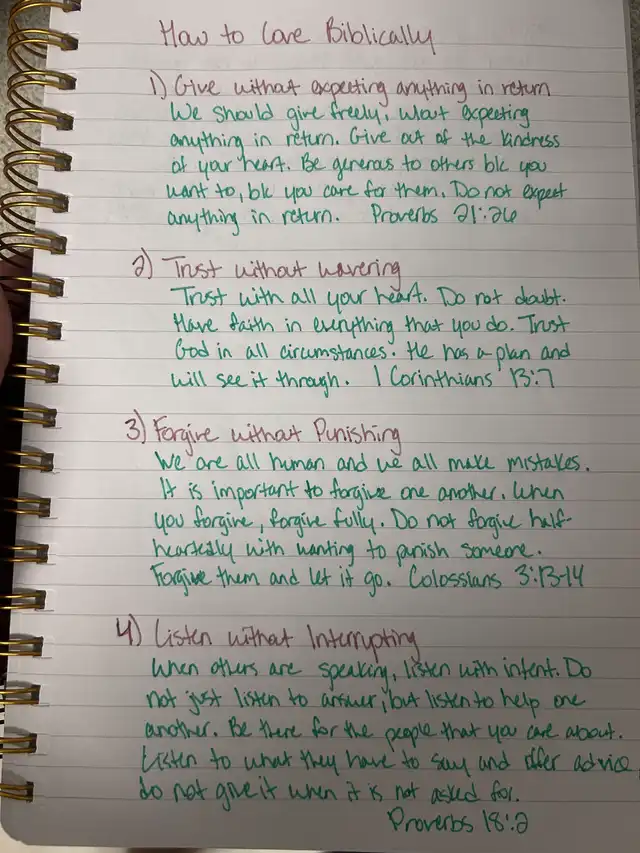 How to Love Biblically
1) Give without expecting anything in return
We should give freely, w/out expecting
anything in return. Give out of the kindness
of your heart. Be generas to others b/c you
want to, b/c you care for them. Do not expect
anything in return. Proverbs 21:26
2) Trust without wavering
Trust with all your heart. Do not doubt.
Have faith in everything that you do. Trust
God in all circumstances. He has a plan and
will see it through. 1 Corinthians 13:7
3) Forgive without Punishing
We are all human and we all make mistakes.
It is important to forgive one another. When
you forgive, forgive fully. Do not forgive half-
heartedly with wanting to punish someone.
Forgive them and let it go. Colossians 3:13-14
4) Listen without Interrupting
When others are speaking, listen with intent. Do
not just listen to answer, but listen to help one
another. Be there for the people that you care about.
Listen to what they have to say and offer advice,
do not give it when it is not asked for.
Proverbs 18:2